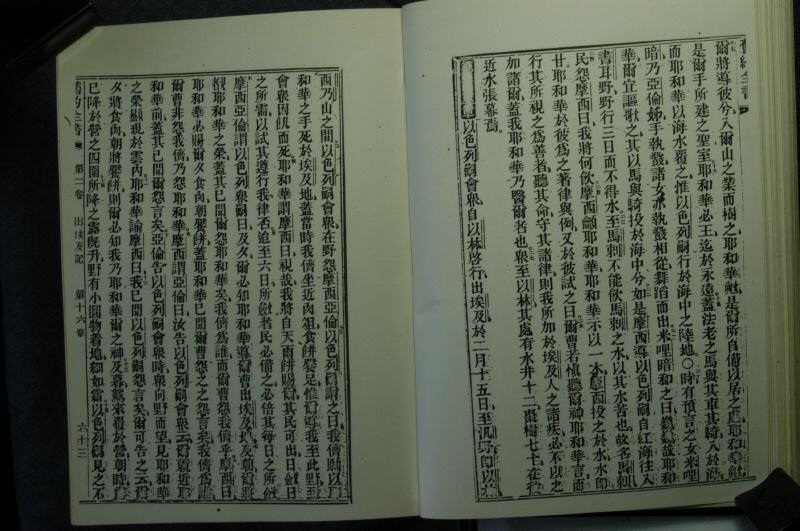 爾將導彼兮入爾山之業而樹之耶和華歟是爾所自備以居之處耶和華歟
是爾手所建之聖至耶和華必王迄於永遠蓋法老之馬與其車其騎入於海
而耶和華以海水覆之惟以色列嗣行於海中之陸地○時有預言之女米哩
暗乃亞倫姊手執鼗諸女亦執鼗相從舞蹈而出米哩暗和之曰歟哉耶和
華爾宜謳歌之其以馬與騎投於海中兮如是摩西導以色列嗣自紅海往入
書耳野野行三日而不得水至馬剌不能飲馬剌之水以其水苦也故名馬剌
民怨摩西曰我將何飲摩西籲耶和華耶和華示以一木摩西投之於水水卽
甘耶和華於彼爲之著律與例又於彼試之曰爾曹若愼聽爾神耶和華言而
行其所視之爲善者聽其命守其諸律則我所加於埃及人之諸疾必不以之
加諸爾蓋我耶和華乃醫爾者也衆至以林其處有水井十二樹七十在彼
近水張幕焉
以色列嗣會衆自以林啓行出埃及於二月十五日至汛野卽以林
西乃山之間以色列嗣會衆在野怨摩西亞倫以色列嗣謂之曰我儕願以耶
和華之手死於埃及地蓋當時我儕坐近肉鍋食餅饜足惟爾導我至此野至
會衆因飢而死耶和華謂摩西曰視哉我將自天雨餅賜爾其民可出日斂日
之所需以試其遵行我律否迨至六日所斂者民必備之必倍其每日之所斂
摩西亞倫謂以色列衆嗣曰及夕爾必知耶和華導爾曹出埃及地及朝爾將
覩耶和華之榮蓋其已聞爾怨耶和華矣我儕爲誰而爾曹怨我儕乎摩西曰
耶和華必賜爾夕食肉朝饜餅蓋耶和華已聞爾曹怨之之怨言矣我儕爲誰
爾曹非怨我儕乃怨耶和華摩西謂亞倫曰汝告以色列嗣會衆云爾曹近耶
和華前蓋其已聞爾怨言矣亞倫告以色列嗣會衆時衆向野而望見耶和華
之榮顯現於雲內耶和華諭摩西曰我已聞以色列嗣怨言矣爾可告之云爾
夕將食肉朝將饜餅則爾必知我乃耶和華爾之神及暮鶉來覆於營朝時露
已降於營之四圍所降之露旣升野有小圓物着地細如霜以色列嗣見之不
舊約全書 第二卷 出埃及記 第十六章 六十三